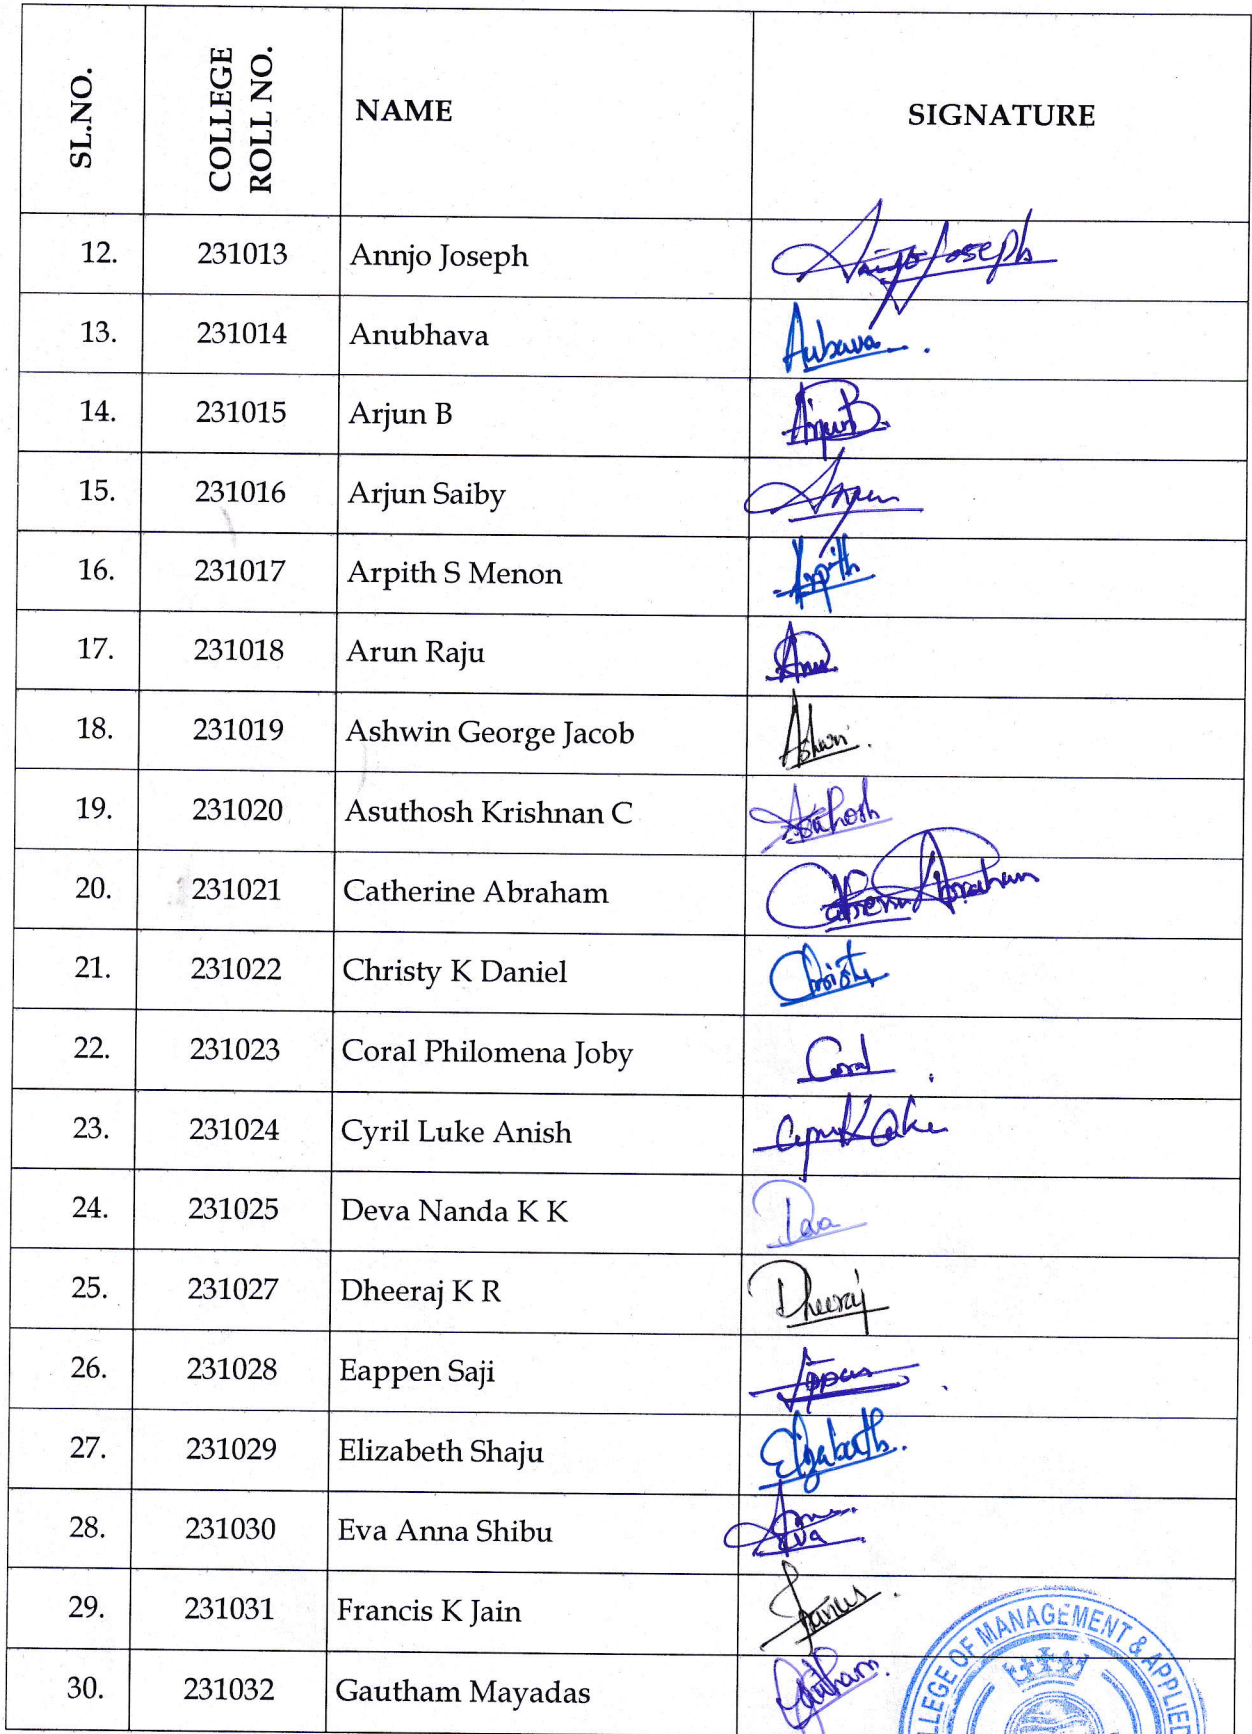 SL.NO. COLLEGE ROLL NO. NAME SIGNATURE
12. 231013 Annjo Joseph Annjo Joseph
13. 231014 Anubhava Aubava
14. 231015 Arjun B Arjun B.
15. 231016 Arjun Saiby Arjun
16. 231017 Arpith S Menon Arpith
17. 231018 Arun Raju Arun
18. 231019 Ashwin George Jacob Ashwin
19. 231020 Asuthosh Krishnan C Asuthosh
20. 231021 Catherine Abraham Catherine Abraham
21. 231022 Christy K Daniel Christy
22. 231023 Coral Philomena Joby Coral
23. 231024 Cyril Luke Anish
24. 231025 Deva Nanda K K
25. 231027 Dheeraj K R Dheeraj
26. 231028 Eappen Saji
27. 231029 Elizabeth Shaju Elizabeth
28. 231030 Eva Anna Shibu Eva
29. 231031 Francis K Jain Francis
30. 231032 Gautham Mayadas Gautham
OF MANAGEMENT &